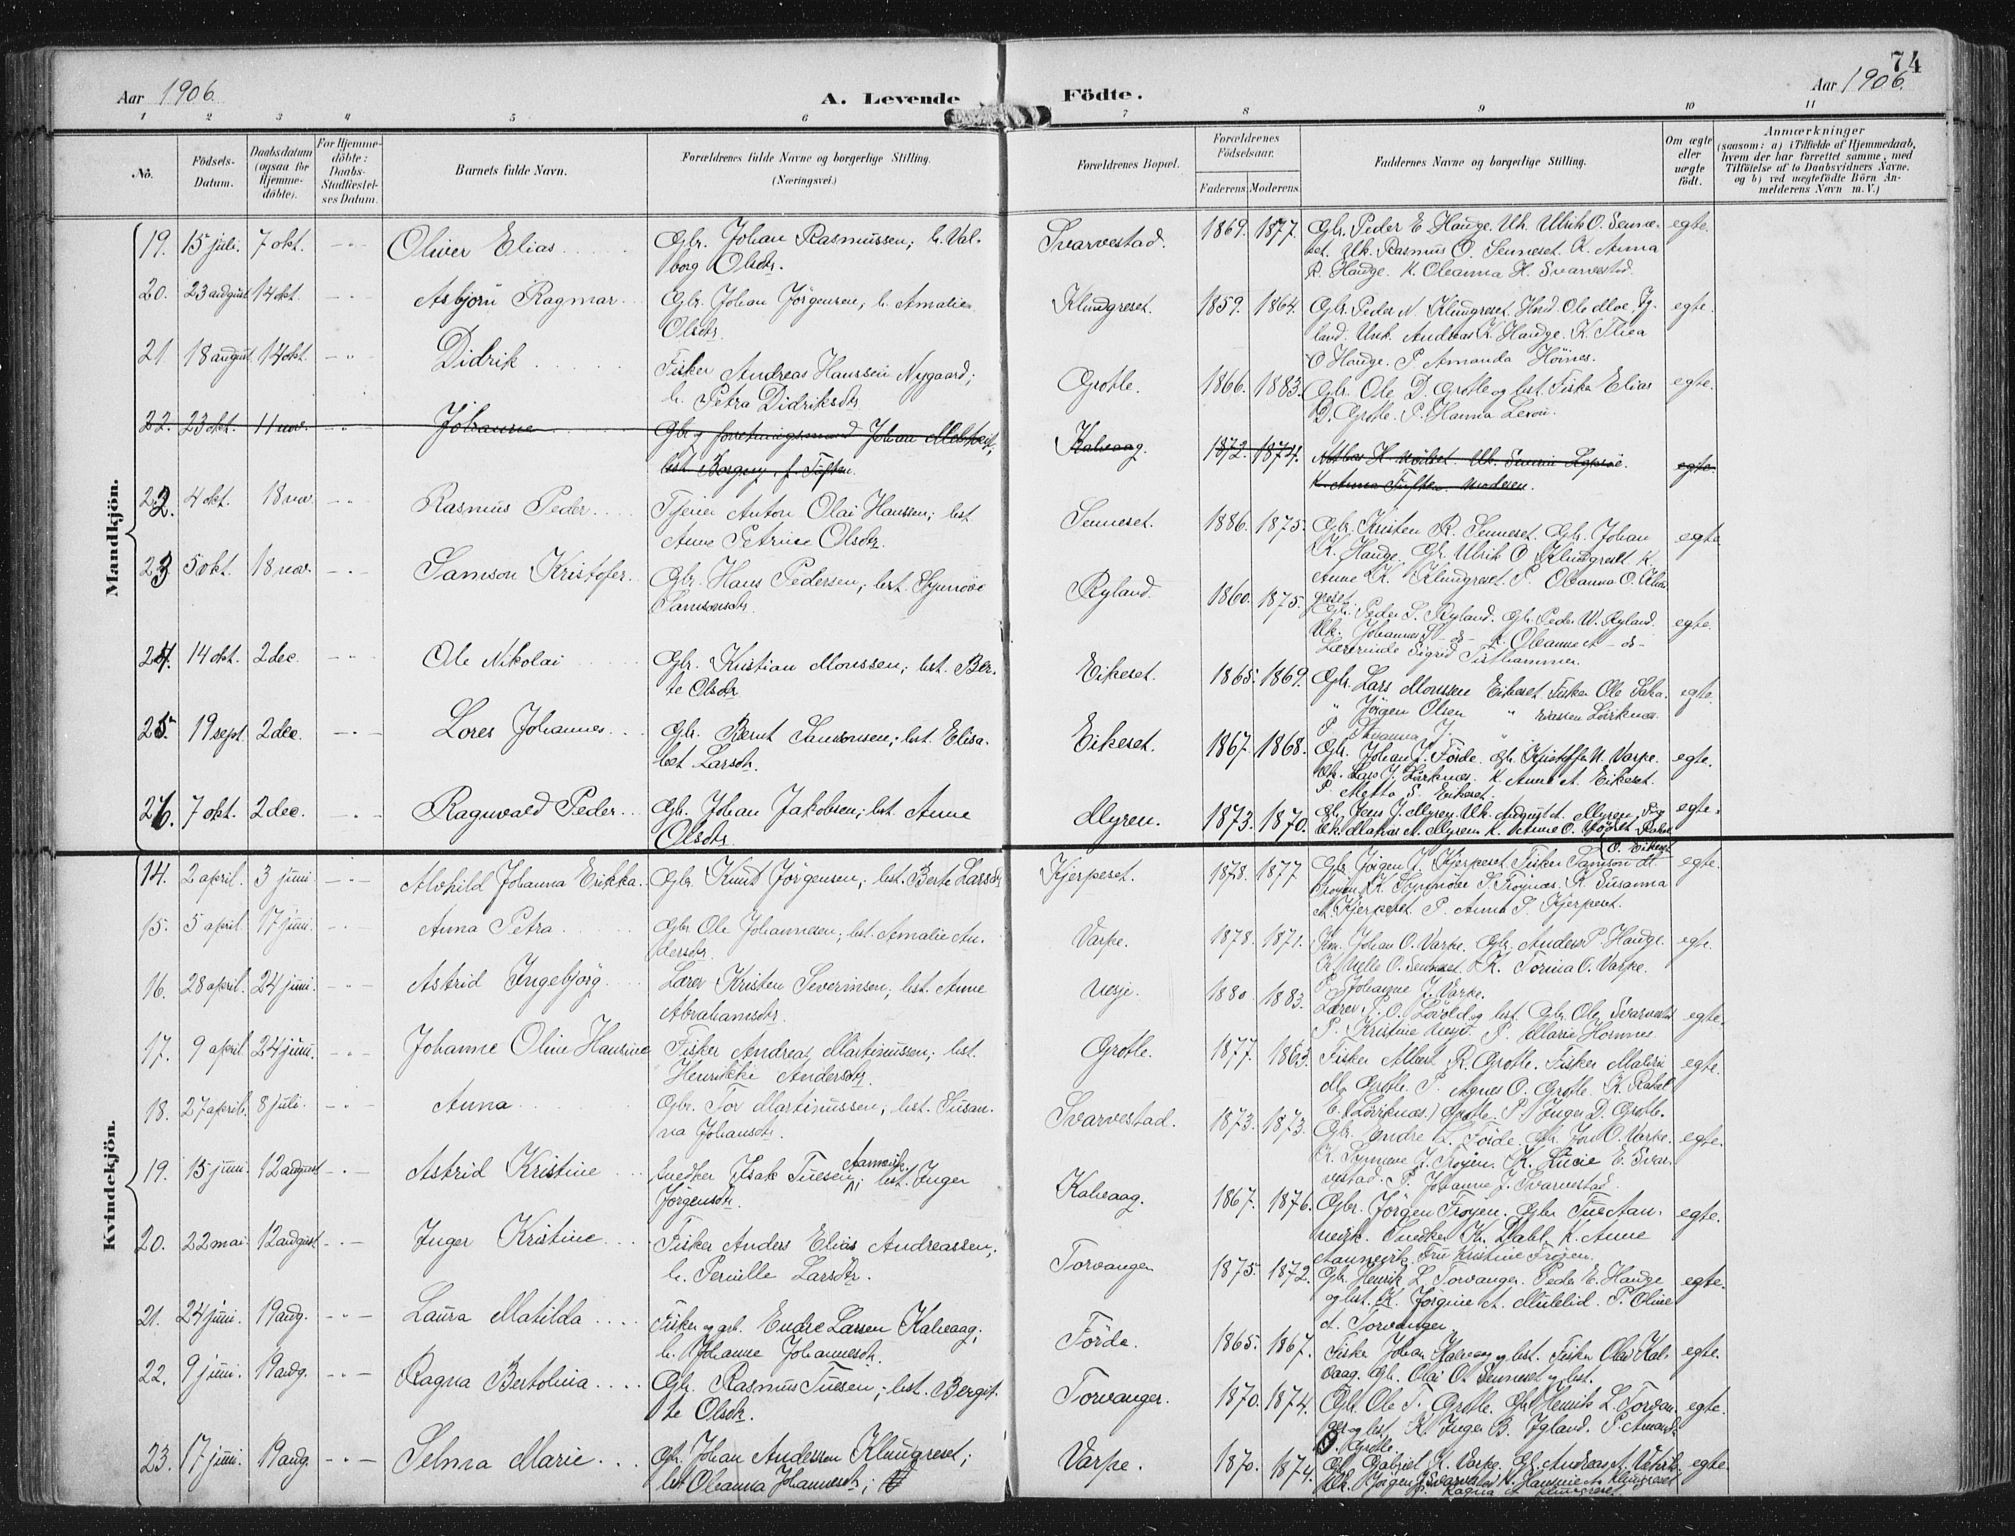 74
Aar 1906
A. Levende Födte.
Aar 1906
1 2 3 4 5 6 7 8 9 10 11
No.
Födsels-
Datum.
Daabsdatum
(ogsaa for
Hjemme-
döbte).
For Hjemme-
döbte:
Daabs-
Stadfæstel-
ses Datum.
Barnets fulde Navn.
Forældrenes fulde Navne og borgerlige Stilling.
(Næringsvei.)
Forældrenes Bopæl.
Forældrenes
Födselsaar.
Faderens. Moderens.
Faddernes Navne og borgerlige Stilling.
Om ægte
eller
uægte
födt.
Anmærkninger
(saasom: a) i Tilfælde af Hjemmedaab,
hvem der har forrettet samme, med
Tilföielse af to Daabsvidners Navne,
og b) ved uægtefödte Börn An-
melderens Navn m. V.)
Mandkjön.
19. 15 juli. 7 okt. Oliver Elias Gbr. Johan Rasmussen; h. Val-
borg Olsdtr. Svarvestad. 1869. 1877. Gbr. Peder E. Hauge. Uk. Ulrik O. Senne-
set. Uk. Rasmus O. Senneset. K. Anna
R. Hauge. K. Oleanna H. Svarvestad. egte.
20. 23 august 14 okt. Asbjørn Ragmar Gbr. Johan Jørgensen; h. Amalie
Olsdtr. Klungreset. 1859. 1864. Gbr. Peder N. Klungreset. Hmd. Ole Moe, Ig-
land. Unk. Andreas K. Hauge. K. Thea
O. Hauge. P. Amanda Høines. egte.
21. 18 august 14 okt. Didrik Fisker Andreas Hanssen Nygaard;
h. Petra Didriksdtr. Grotle. 1866. 1883. Gbr. Ole D. Grotle og hst. Fisker Elias
D. Grotle. P. Hanna egte.
22. 23 okt. 11 nov. Johanne Gbr. og forretningsmand Johan
hst. Borgny f. Tuften. Kalvaag. 1872. 1874.
K. Anna Tuften. Moderen. egte.
22. 4 okt. 18 nov. Rasmus Peder Tjener Anton Olai Hanssen; hst.
Anne Petrine Olsdtr. Senneset. 1886. 1875. Gbr. Kristen R. Senneset. Gbr. Johan
K. Hauge. Gbr. Ulrik O. Klungreset. K.
Anne K. Klungreset. P. Oleanna O. Klun-
greset. egte
23. 5 okt. 18 nov. Samson Kristofer Gbr. Hans Pedersen; hst. Synnøve
Samsonsdtr. Ryland. 1860. 1875. Gbr. Peder S. Ryland. Gbr. Peder W. Ryland.
Uk. Johannes S. - ds - K. Oleanne - ds -
Lærerinde Sigrid Tisthammer. egte.
24. 14 okt. 2 dec. Ole Nikolai Gbr. Kristian Monssen; hst. Ber-
te Olsdtr. Eikeset. 1865. 1869. Gbr. Lars Monssen Eikeset. Fisker Ole
" Jørgen Olsen "
P. Susanna J. " egte.
25. 19 sept. 2 dec. Lores Johannes Gbr. Bernt Samsonsen; hst. Elisa-
bet Larsdtr. Eikeset. 1867. 1868. Gbr. Johan L. Førde. Gbr. Kristoffer N. Varpe.
Gbr. Lars J. Lørknes. K. Anne A. Eikeset.
P. Metta S. Eikeset. egte.
26. 7 okt. 2 dec. Ragnvald Peder Gbr. Johan Jakobsen; hst. Anne
Olsdtr. Myren. 1873. 1870. Gbr. Jens J. Myren. Uk. August A. Myren,
Uk. Mathias A. Myren. K. Anne O.
O. Eikeset egte.
Kvindekjön.
14. 2 april. 3 juni. Alvhild Johanna Erikka. Gbr. Knut Jørgensen; hst. Berte Larsdtr. Kjerpeset. 1878. 1877 Gbr. Jørgen J. Kjerpeset. Fisker Samson A.
Frøyen. K. Synnøve S. Frøynes. K. Susanna
A. Kjerpeset. P. Anna S. Kjerpeset. egte.
15. 5 april. 17 juni. Anna Petra Gbr. Ole Johannesen; hst. Amalie An-
dersdtr. Varpe. 1878. 1871. Em. Johan O. Varpe. Gbr. Anders P. Hauge.
Gbr. Nille O. Senneset. K. Torina O. Varpe.
P. Johanne J. Varpe. egte.
16. 28 april. 24 juni. Astrid Ingebjørg Lærer Kristen Severinsen; hst. Anne
Abrahamsdtr. Nesje. 1880 1883. Lærer P. O. Løvold og hst. Gbr. Ole Svarvestad
P. Kristine Nesje. P. Marie Hornnes egte.
17. 9 april. 24 juni. Johanne Oline Hansine Fisker Andreas Martinussen; hst.
Henrikke Andersdtr. Grotle. 1877. 1863. Fisker Albert R. Grotle. Fisker Mathias
M. Grotle. P. Agnes O. Grotle. K. Rakel
E. (Lørknes) Grotle. P. Inger D. Grotle. egte.
18. 27 april. 8 juli. Anna Gbr. Tor Martinussen; hst. Susan-
na Johansdtr. Svarvestad. 1873. 1873. Gbr. Endre L. Førde. Gbr. Jon O. Varpe.
K. Synneve J. Frøyen. K. Lucie E. Svar-
vestad. P. Johanne J. Svarvestad. egte.
19. 15 juni. 12 august Astrid Kristine Snedker Isak Tuesen Aannevik; hst. Inger
Jørgensdtr. Kalvaag. 1867. 1876. Gbr. Jørgen Frøyen. Gbr. Tue Aan-
nevik. Snedker Kr. Dahl. K. Anne
Aannevik. Fru Kristine Frøyen. egte.
20. 22 mai. 12 august Inger Kristine Fisker Anders Elias Andreassen;
h. Pernille Larsdtr. Torvanger 1875. 1872. Gbr. Henrik L. Torvanger. Peder E. Hauge
og hst. K. Jørgine A. Mulelid. P. Oline
A. Torvanger. egte.
21. 24 juni. 19 aug. Laura Matilda Fisker og arb. Endre Larsen Kalvaag;
h. Johanne Johannesdtr. Førde. 1865. 1867. Fisker Johan Kalvaag og hst. Fisker Olai Kal-
vaag. Gbr. Olai O. Senneset og hst. egte.
22. 9 juni. 19 aug. Ragna Bertolina Gbr. Rasmus Tuesen; hst. Bergit-
te Olsdtr. Torvanger. 1870. 1874. Gbr. Ole T. Grotle. Gbr. Henrik L. Torvan-
ger og hst. K. Inger B. Igland. P. Amanda
O. Grotle. egte.
23. 17 juni. 19 aug Selma Marie Gbr. Johan Anderssen Klungreset;
hst. Oleanna Johannesdtr; Varpe. 1870. 1874. Gbr. Gabriel K. Varpe. Gbr. Andreas A.
Uk. Jørgen Svarvestad. K. Hansine A. Klungreset.
P. Ragna A. Klungreset. egte.